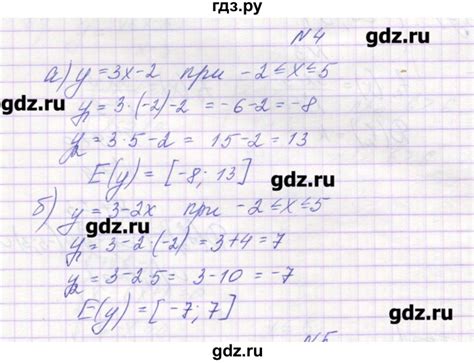 гдз.ру
N4
gdz.ru
а) y = 3x-2 при -2≤x≤5
gdz.ru
y₁ = 3·(-2)-2 = -6-2 = -8
gdz.ru
y₂ = 3·5-2 = 15-2 = 13
E(y) = [-8; 13]
gdz.ru
б) y = 3-2x при -2≤x≤5
gdz.ru
y₁ = 3-2·(-2) = 3+4 = 7
gdz.ru
y₂ = 3-2·5 = 3-10 = -7
gdz.ru
E(y) = [-7; 7]
gdz.ru
N5